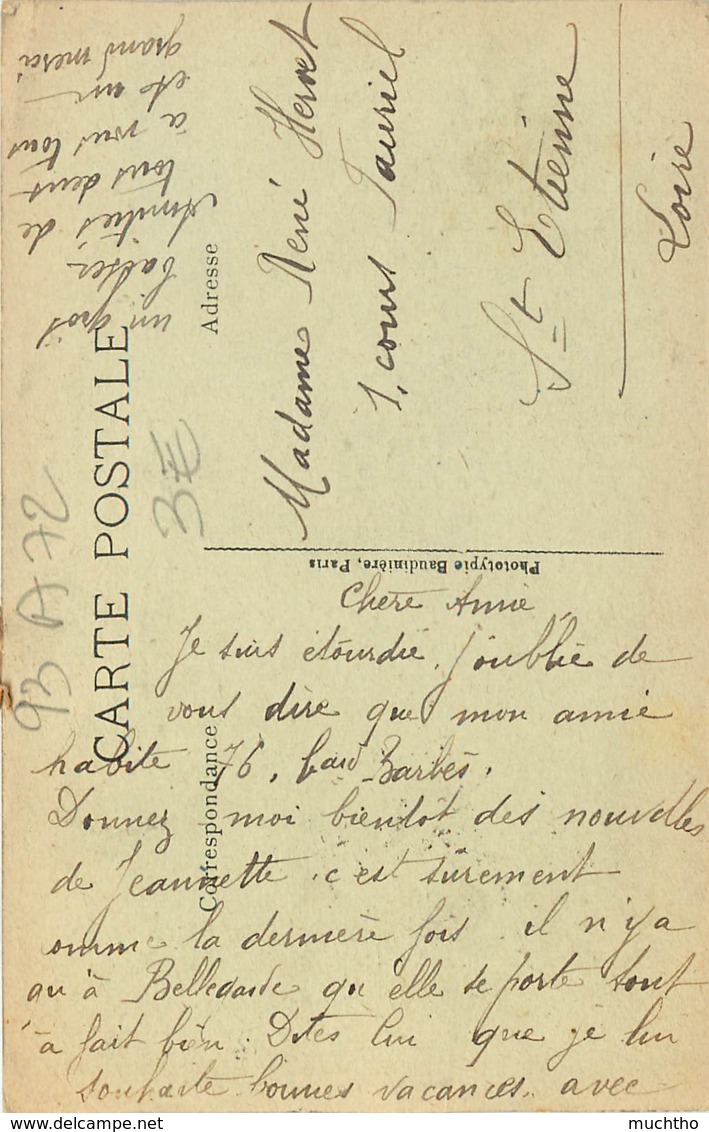 CARTE POSTALE
Correspondance
Adresse
Phototypie Baudinière, Paris
93 A 72
3€
Madame René Hervet
1, cours Fauriel
St Etienne
Loire
Chère Amie,
Je suis étourdie, j'oublie de
vous dire que mon amie
habite 76, bard Barbès.
Donnez moi bientôt des nouvelles
de Jeannette. c'est sûrement
omme la dernière fois il n'y a
qu'à Bellegarde qu'elle se porte tout
à fait bien. Dites lui que je lui
souhaite bonnes vacances. avec
un gros
baiser
Amitiés de
tous deux
à vous tous
et un
grand merci
muchtho